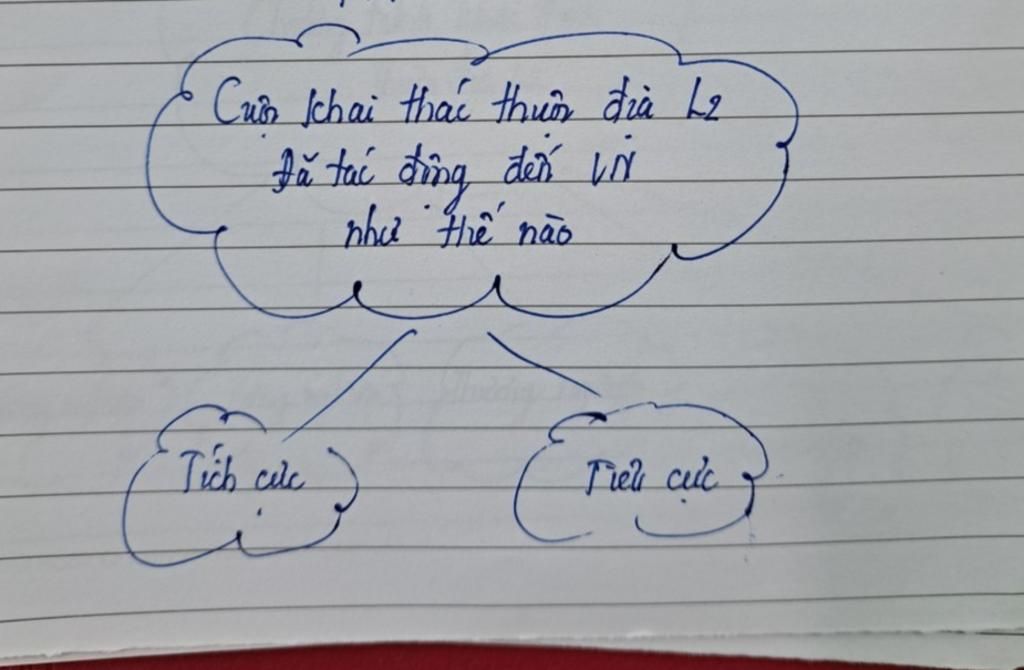 Cuộc khai thác thuộc địa L2
Đã tác động đến VN
như thế nào
Tích cực
Tiêu cực